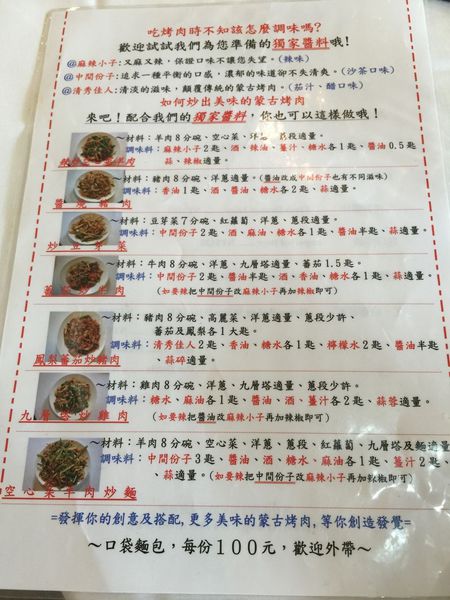 吃烤肉時不知該怎麼調味嗎?
歡迎試試我們為您準備的獨家醬料哦!
@麻辣小子:又麻又辣,保證口味不讓您失望。(辣味)
@中間份子:追求一種平衡的口感,濃郁的味道卻不失清爽。(沙茶口味)
@清秀佳人:清淡的滋味,顛覆傳統的蒙古烤肉。(茄汁、醋口味)
如何炒出美味的蒙古烤肉
來吧!配合我們的獨家醬料,你也可以這樣做哦!
~材料:羊肉8分碗、空心菜、洋蔥、蔥段適量。
調味料:麻辣小子2匙、酒、辣油、薑汁、糖水各1匙、醬油0.5匙
蒜、辣椒適量。
羊肉
~材料:豬肉8分碗、洋蔥適量。(醬油改成中間份子也有不同滋味)
調味料:香油1匙、酒、醬油、糖水各2匙、蒜適量。
醬燒豬肉
~材料:豆芽菜7分碗、紅蘿蔔、洋蔥、蔥段適量。
調味料:中間份子2匙、酒、麻油、糖水各1匙、醬油半匙、蒜適量。
炒豆芽菜
~材料:牛肉8分碗、洋蔥、九層塔適量、蕃茄1.5匙。
調味料:中間份子2匙、醬油半匙、酒、香油、糖水各1匙、蒜適量。
(如要辣把中間份子改麻辣小子再加辣椒即可)
蕃茄炒牛肉
~材料:豬肉8分碗、高麗菜、洋蔥適量、蔥段少許、
蕃茄及鳳梨各1大匙。
調味料:清秀佳人2匙、香油、糖水各1匙、檸檬水2匙、醬油半匙
、蒜碎適量。
鳳梨蕃茄炒豬肉
~材料:雞肉8分碗、洋蔥、九層塔適量、蔥段少許。
調味料:糖水、麻油各1匙、醬油、酒、薑汁各2匙、蒜蓉適量。
(如要辣把醬油改麻辣小子再加辣椒即可)
九層塔炒雞肉
~材料:羊肉8分碗、空心菜、洋蔥、蔥段、紅蘿蔔、九層塔及麵適量
調味料:中間份子3匙、醬油、酒、糖水、麻油各1匙、薑汁2匙、
蒜適量。(如要辣把中間份子改麻辣小子再加辣椒即可)
空心菜羊肉炒麵
=發揮你的創意及搭配,更多美味的蒙古烤肉,等你創造發覺=
~口袋麵包,每份100元,歡迎外帶~